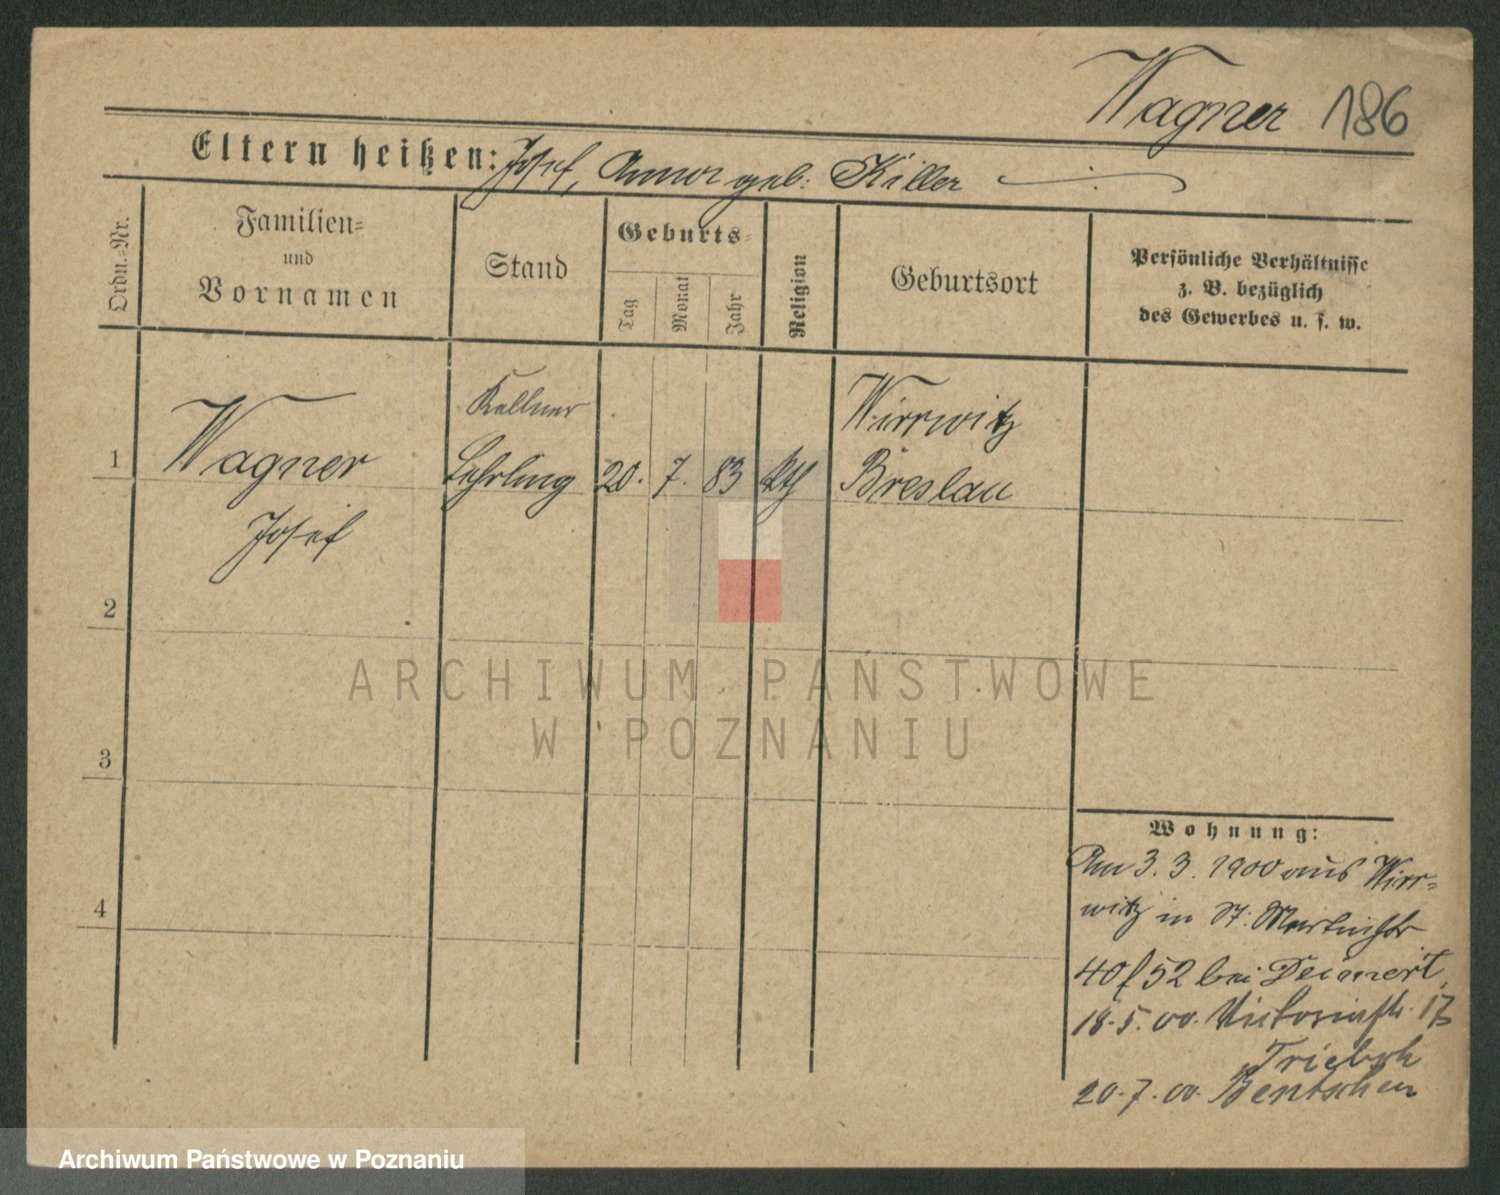 Wagner 186
Eltern heißen: Josef, Anna geb. Killer
Ordn.-Nr.
Familien-
und
Vornamen
Stand
Geburts-
Tag
Monat
Jahr
Religion
Geburtsort
Persönliche Verhältnisse
z. B. bezüglich
des Gewerbes u. s. w.
Kellner
Wirrwitz
1 Wagner Lehrling 20. 7. 83 kth Breslau
Josef
2
3
4
ARCHIWUM PAŃSTWOWE
W POZNANIU
Wohnung:
Am 3. 3. 1900 aus Wirr=
witz in St. Martinstr
40/52 bei
18.5.00. Victoriastr. 17
20.7.00. Bentschen
Archiwum Państwowe w Poznaniu